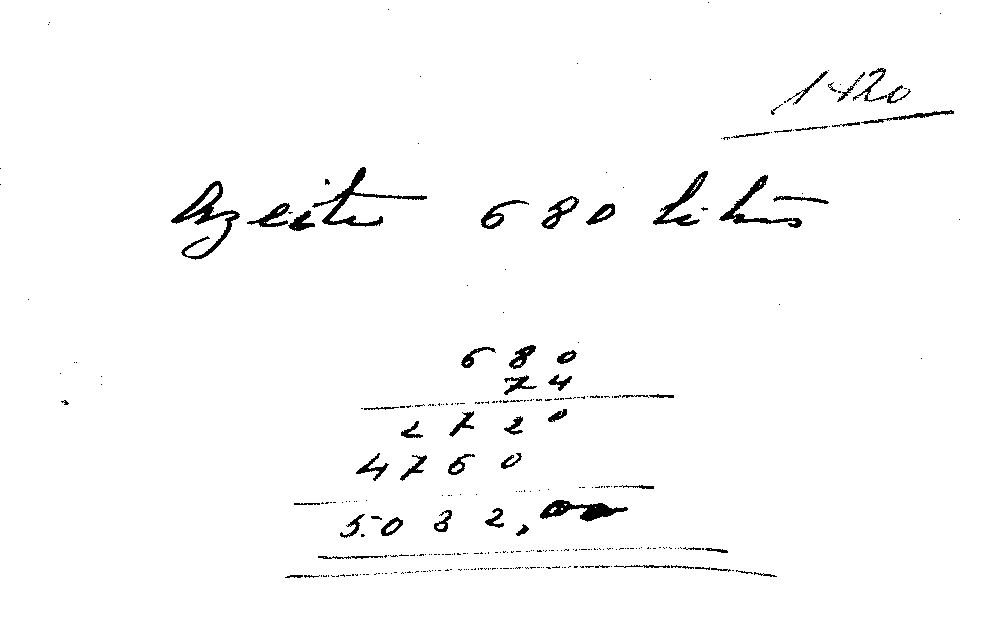 1420
Azeite 680 litros
680
74
2720
4760
5.032,00